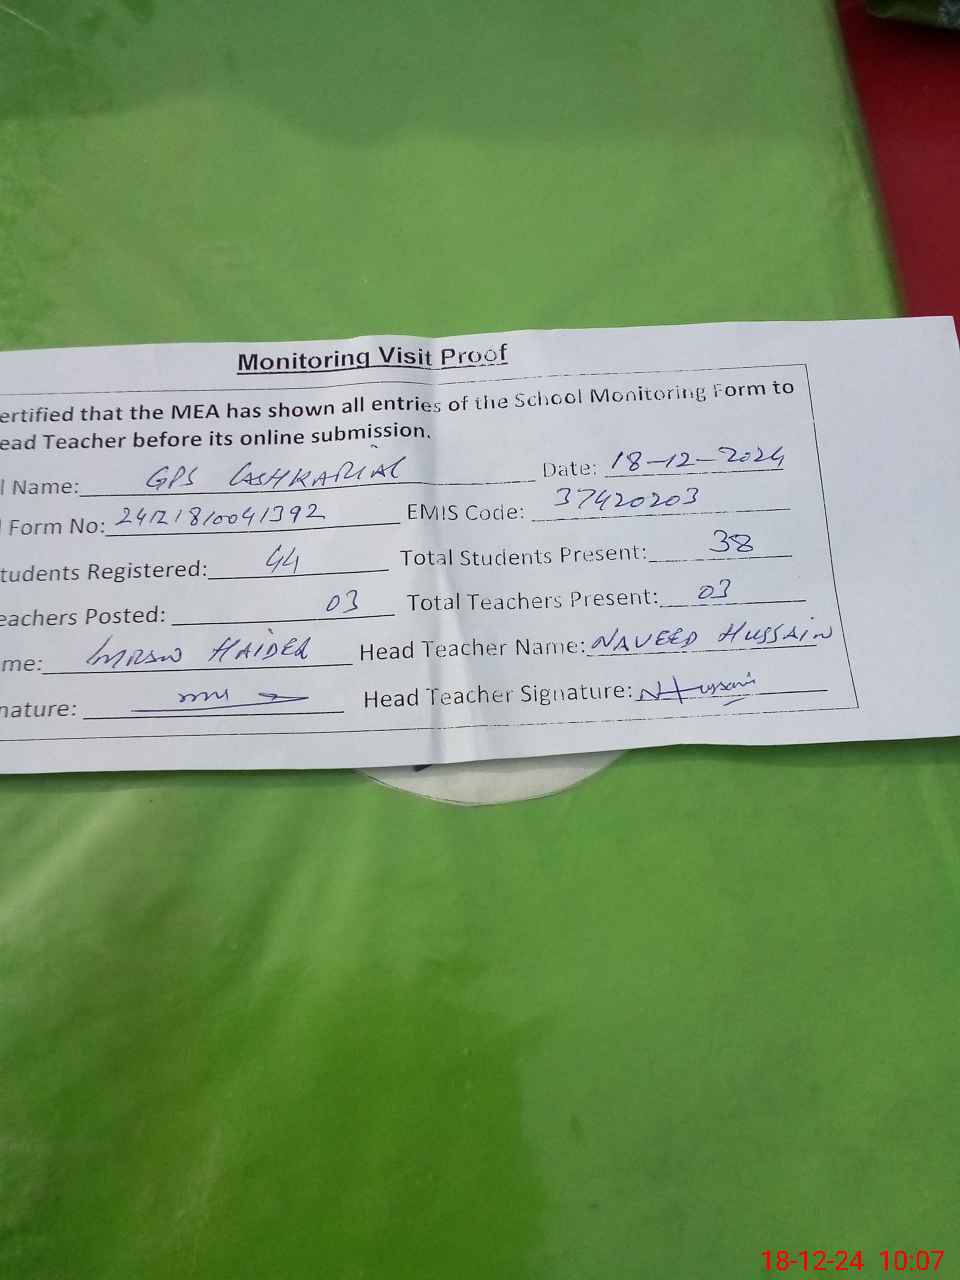 Monitoring Visit Proof
ertified that the MEA has shown all entries of the School Monitoring Form to
ead Teacher before its online submission.
l Name: GPS LASHKARIAL Date: 18-12-2024
l Form No: 24121810041392 EMIS Code: 37420203
tudents Registered: 44 Total Students Present: 38
eachers Posted: 03 Total Teachers Present: 03
me: IMRAN HAIDER Head Teacher Name: NAVEED HUSSAIN
nature: Head Teacher Signature: NHussain
18-12-24 10:07